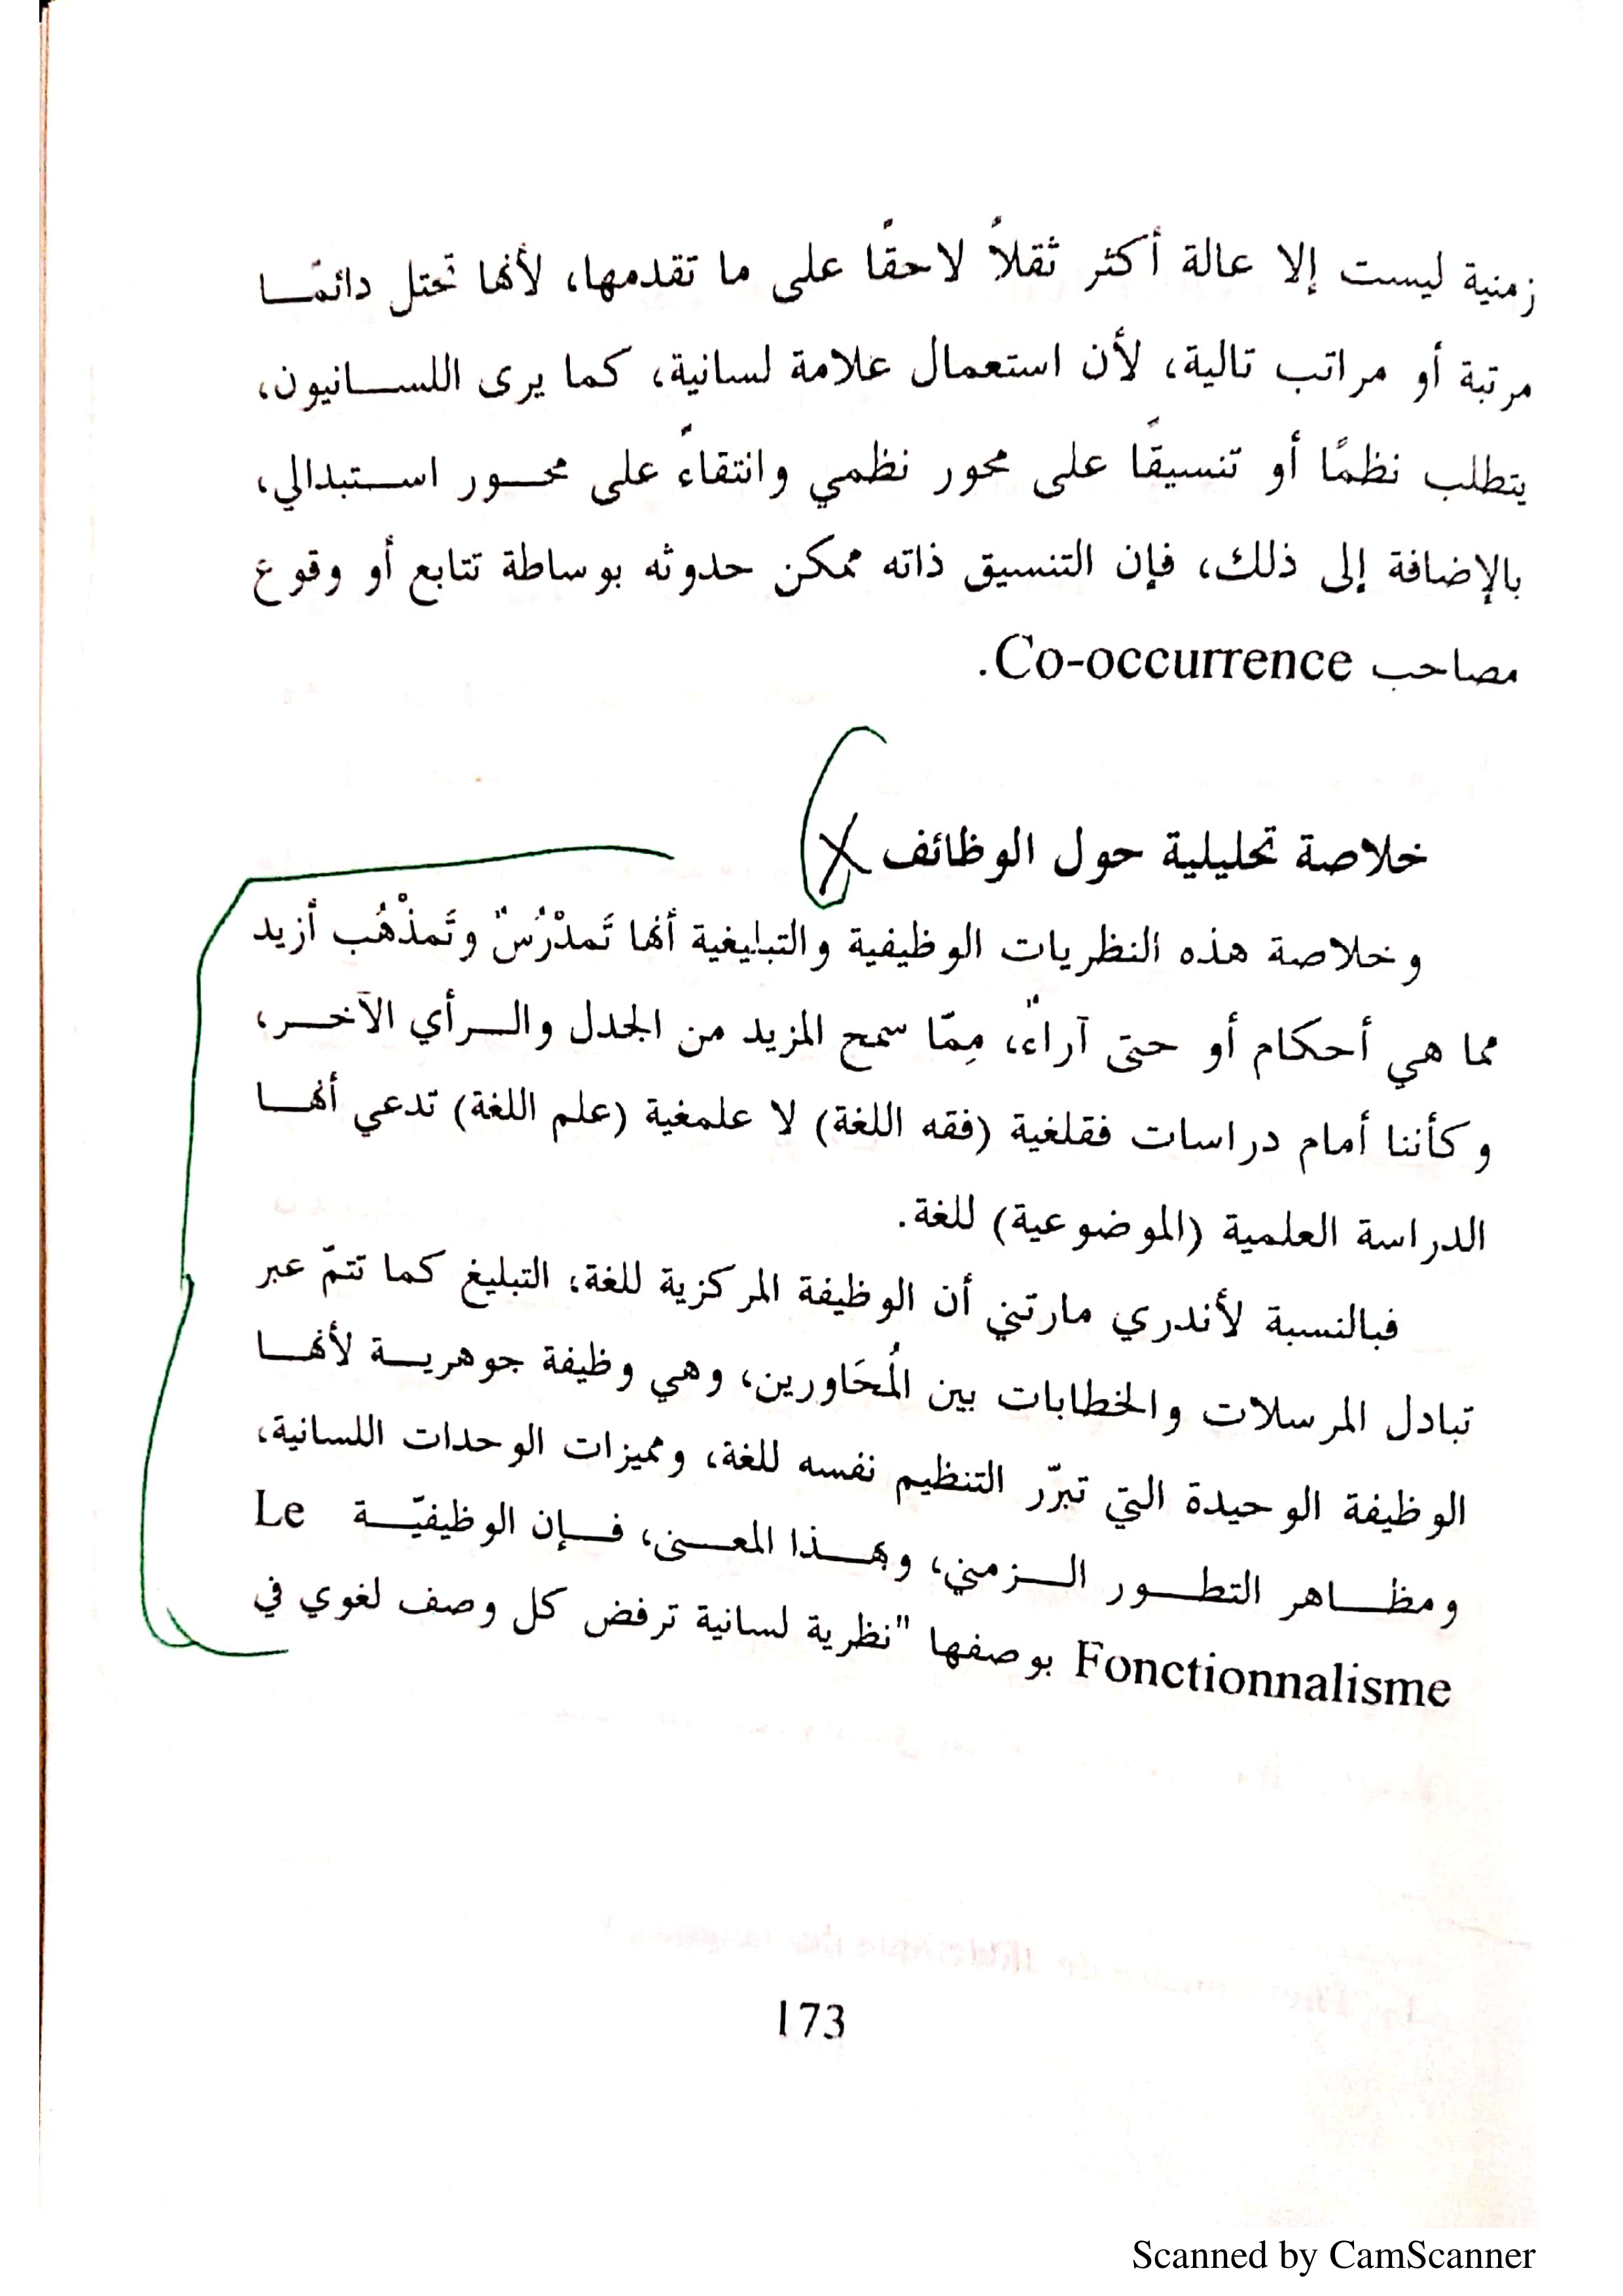 زمنية ليست إلا عالة أكثر ثقلاً لاحقًا على ما تقدمها، لأنها تحتل دائمًا
مرتبة أو مراتب تالية، لأن استعمال علامة لسانية، كما يرى اللسانيون،
يتطلب نظمًا أو تنسيقًا على محور نظمي وانتقاءً على محور استبدالي،
بالإضافة إلى ذلك، فإن التنسيق ذاته ممكن حدوثه بوساطة تتابع أو وقوع
مصاحب Co-occurrence.
خلاصة تحليلية حول الوظائف
وخلاصة هذه النظريات الوظيفية والتبليغية أنها تَمدْرُسٌ وتَمذْهُب أزيد
مما هي أحكام أو حتى آراءٌ، مِمّا سمح المزيد من الجدل والرأي الآخر،
وكأننا أمام دراسات فقلغية (فقه اللغة) لا علمغية (علم اللغة) تدعي أنها
الدراسة العلمية (الموضوعية) للغة.
فبالنسبة لأندري مارتني أن الوظيفة المركزية للغة، التبليغ كما تتمّ عبر
تبادل المرسلات والخطابات بين المُحَاورين، وهي وظيفة جوهرية لأنها
الوظيفة الوحيدة التي تبرّر التنظيم نفسه للغة، ومميزات الوحدات اللسانية،
ومظاهر التطور الزمني، وبهذا المعنى، فإن الوظيفيّة Le
Fonctionnalisme بوصفها "نظرية لسانية ترفض كل وصف لغوي في
173
Scanned by CamScanner